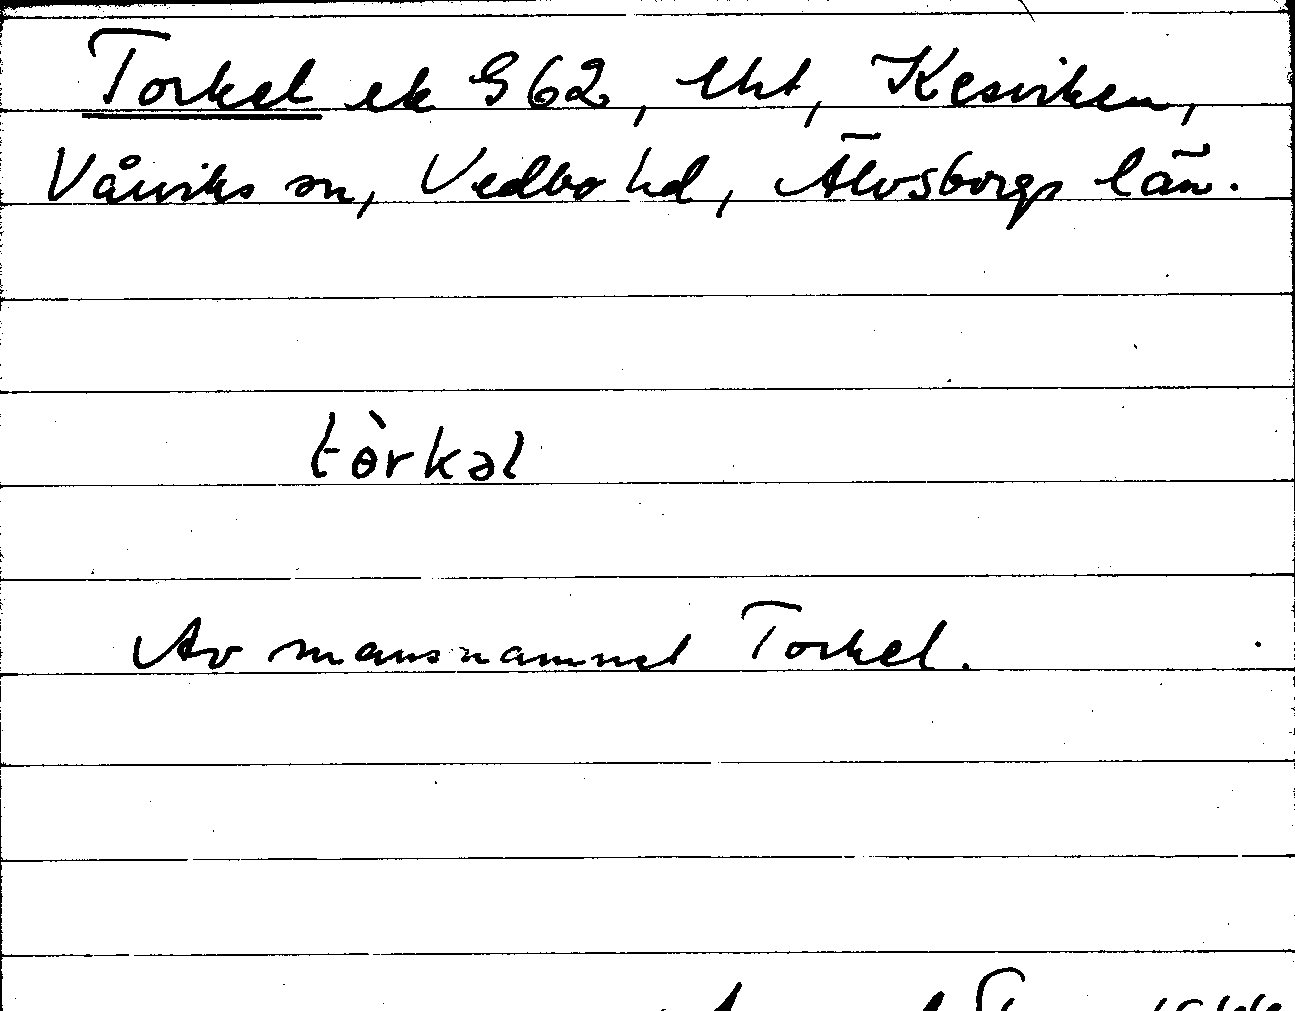 Torkel ek S 62, lht, Kesviken,
Vårviks sn, Vedbo hd, Älvsborgs län.
tòrkəl
Av mansnamnet Torkel.